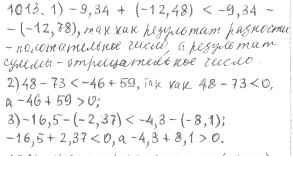 1013. 1) -9,34 + (-12,48) < -9,34 -
- (-12,78), так как результат разности
- положительные число, а результат
суммы - отрицательное число.
2) 48 - 73 < -46 + 59, так как 48 - 73 < 0,
а -46 + 59 > 0;
3) -16,5 - (-2,37) < -4,3 - (-8,1);
-16,5 + 2,37 < 0, а -4,3 + 8,1 > 0.